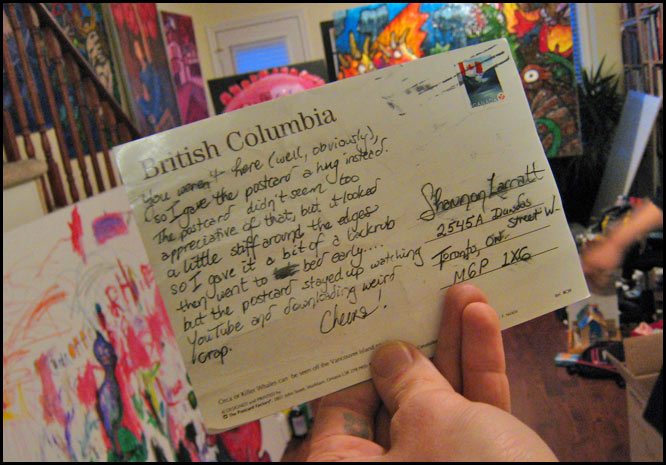 British Columbia
You weren't here (well, obviously),
so I gave the postcard a hug instead.
The postcard didn't seem too
appreciative of that, but it looked
a little stiff around the edges
so I gave it a bit of a backrub
then went to bed early....
but the postcard stayed up watching
YouTube and downloading weird
crap.
Cheers!
CANADA
Shannon Larratt
2545A Dundas
Street W.
Toronto, Ont.
M6P 1X6
Orca or Killer Whales can be seen off the Vancouver Island
The Postcard Factory